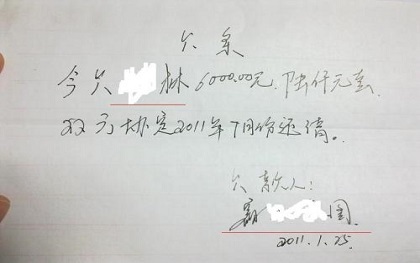 欠条
今欠 林6000.00元.陆仟元整.
双方协定2011年7月份还清。
欠款人：
国
2011.1.25